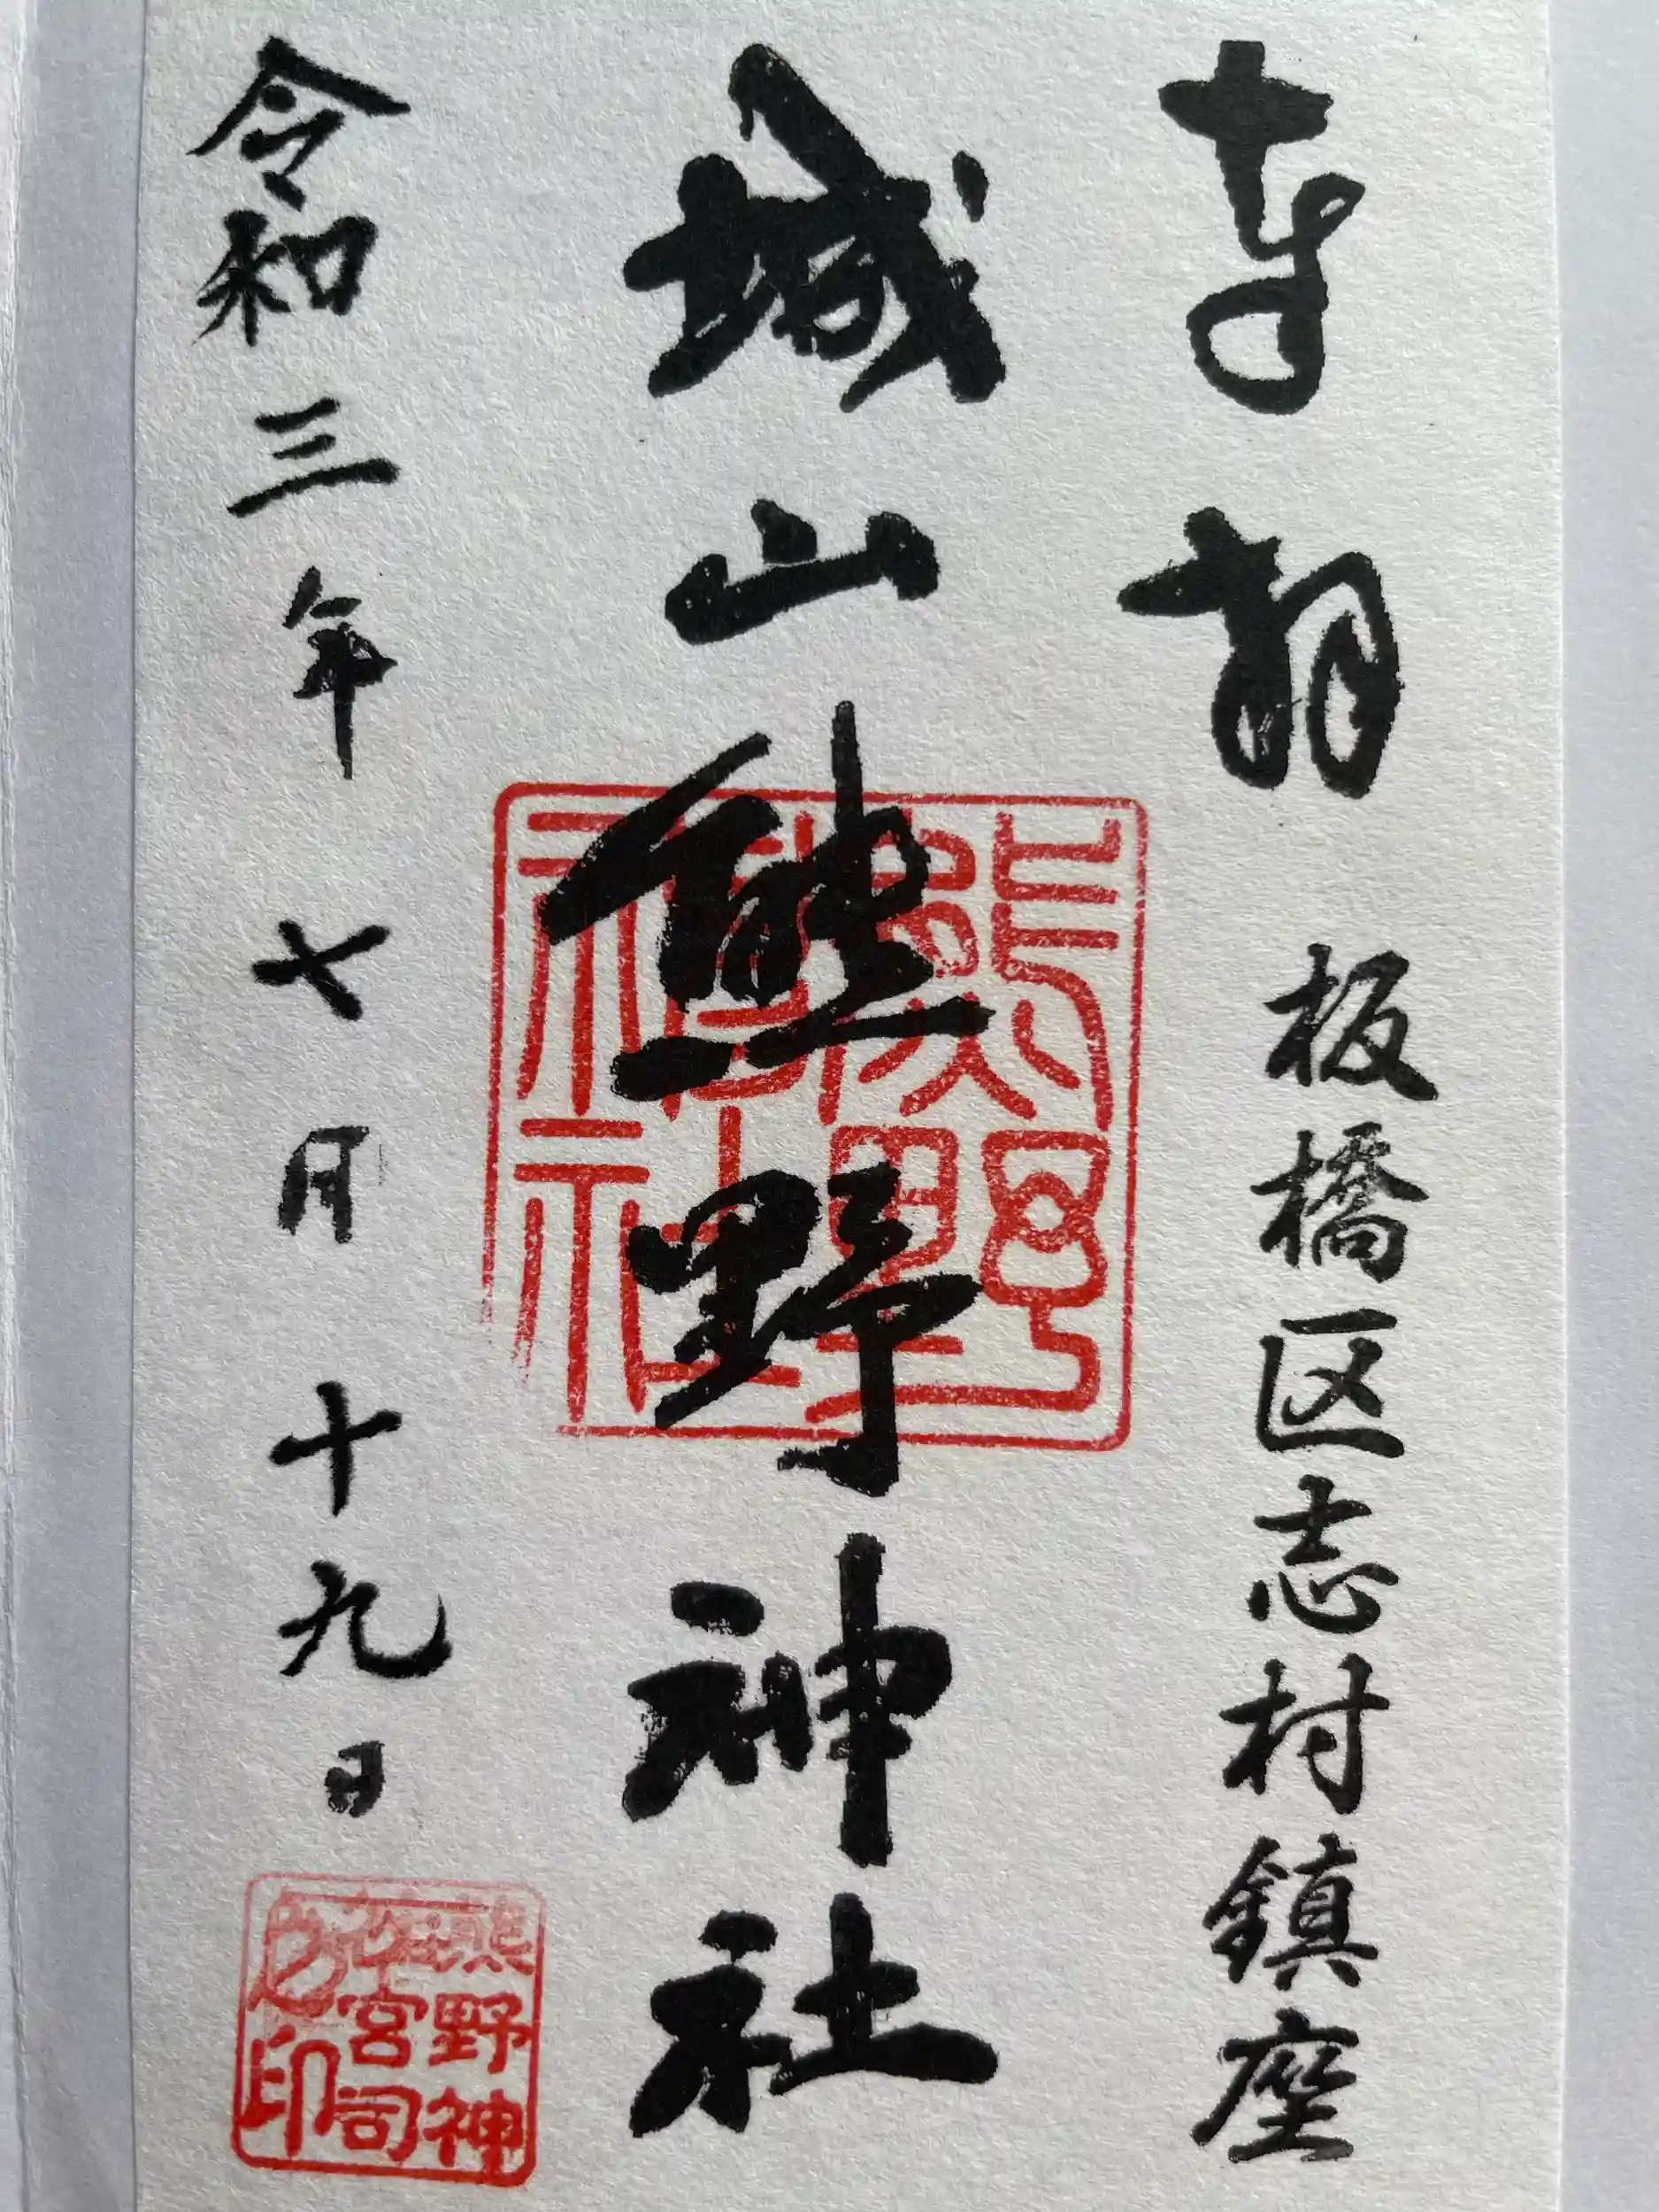 奉拝 板橋区志村鎮座
城山熊野神社
熊野
神社
令和三年 七月十九日
熊野神
社宮司
之印